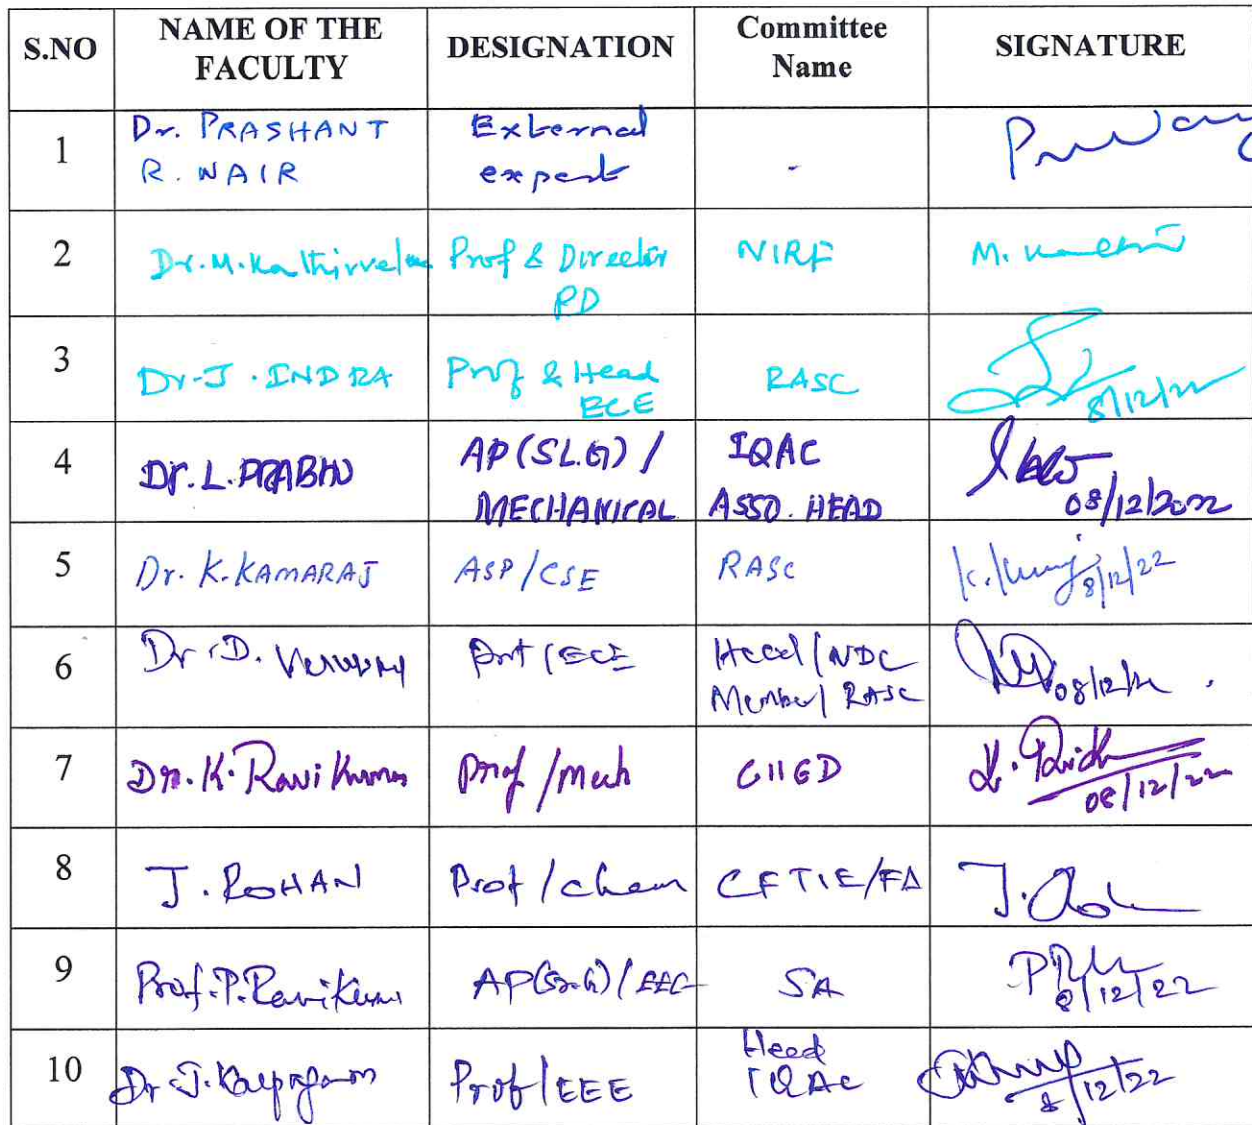 S.NO NAME OF THE FACULTY DESIGNATION Committee Name SIGNATURE
1 Dr. PRASHANT R. NAIR External expert -
2 Dr. M. Kathirvelu Prof & Director PD NIRF M. Kathir
3 Dr. J. INDRA Prof & Head ECE RASC 8/12/22
4 Dr. L. PRABHU AP(SL.G) / MECHANICAL IQAC ASSO. HEAD 08/12/2022
5 Dr. K. KAMARAJ ASP/CSE RASC 8/12/22
6 Dr. D. Prof/ECE Head/NDC Member/RASC 08/12/22
7 Dr. K. Ravi Kumar Prof/Mech CIIGD 08/12/22
8 J. ROHAN Prof/chem CFTIE/FA J. Roh
9 Prof. P. Ravikumar AP(Sr.G)/EEE SA 8/12/22
10 Dr. J. Prof/EEE Head IQAC 8/12/22